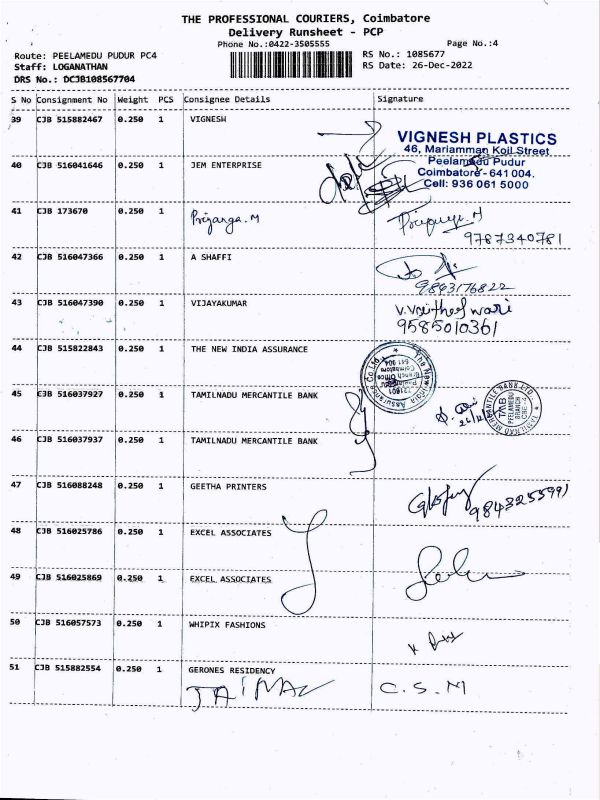 THE PROFESSIONAL COURIERS, Coimbatore
Delivery Runsheet - PCP
Phone No.:0422-3505555
Page No.:4
Route: PEELAMEDU PUDUR PC4
RS No.: 1085677
Staff: LOGANATHAN
RS Date: 26-Dec-2022
DRS No.: DCJB108567704
S No Consignment No Weight PCS Consignee Details Signature
39 CJB 515882467 0.250 1 VIGNESH
VIGNESH PLASTICS
46, Mariamman Koil Street
Peelamedu Pudur
Coimbatore - 641 004.
Cell: 936 061 5000
40 CJB 516041646 0.250 1 JEM ENTERPRISE
41 CJB 173670 0.250 1 Priyanga.M
9787340781
42 CJB 516047366 0.250 1 A SHAFFI
9843176822
43 CJB 516047390 0.250 1 VIJAYAKUMAR
V.Vaitheeswari
9585010361
44 CJB 515822843 0.250 1 THE NEW INDIA ASSURANCE
45 CJB 516037927 0.250 1 TAMILNADU MERCANTILE BANK
TAMILNAD MERCANTILE BANK LTD.
TMB
PEELAMEDU
BRANCH
CBE-4
46 CJB 516037937 0.250 1 TAMILNADU MERCANTILE BANK
47 CJB 516088248 0.250 1 GEETHA PRINTERS
9843255991
48 CJB 516025786 0.250 1 EXCEL ASSOCIATES
49 CJB 516025869 0.250 1 EXCEL ASSOCIATES
50 CJB 516057573 0.250 1 WHIPIX FASHIONS
51 CJB 515882554 0.250 1 GERONES RESIDENCY
C.S.M